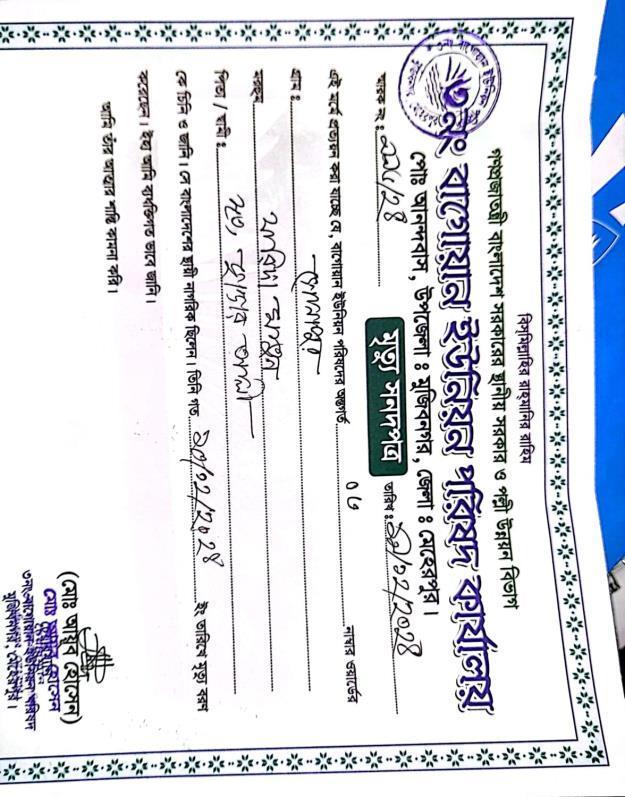 বিস্‌মিল্লাহির রাহ্‌মানির রাহিম
গণপ্রজাতন্ত্রী বাংলাদেশ সরকারের স্থানীয় সরকার ও পল্লী উন্নয়ন বিভাগ
৩নং বাগোয়ান ইউনিয়ন পরিষদ কার্যালয়
পোঃ আনন্দবাস, উপজেলা : মুজিবনগর, জেলা : মেহেরপুর।
স্মারক নং : /২৪
মৃত্যু সনদপত্র
তারিখ : /১২/২০২৪
এই মর্মে প্রত্যয়ন করা যাচ্ছে যে, বাগোয়ান ইউনিয়ন পরিষদের অন্তর্গত ০৬ নাম্বার ওয়ার্ডের
গ্রাম :
মরহুম
পিতা / স্বামী : মৃত আলী
কে চিনি ও জানি। সে বাংলাদেশের স্থায়ী নাগরিক ছিলেন। তিনি গত /২০২৪ ইং তারিখে মৃত্যু বরণ
করেছেন। ইহা আমি ব্যক্তিগত ভাবে জানি।
আমি তাঁর আত্মার শান্তি কামনা করি।
(মোঃ আয়ুব হোসেন)
মোঃ আয়ুব হোসেন
চেয়ারম্যান
৩নং বাগোয়ান ইউনিয়ন পরিষদ
মুজিবনগর, মেহেরপুর।